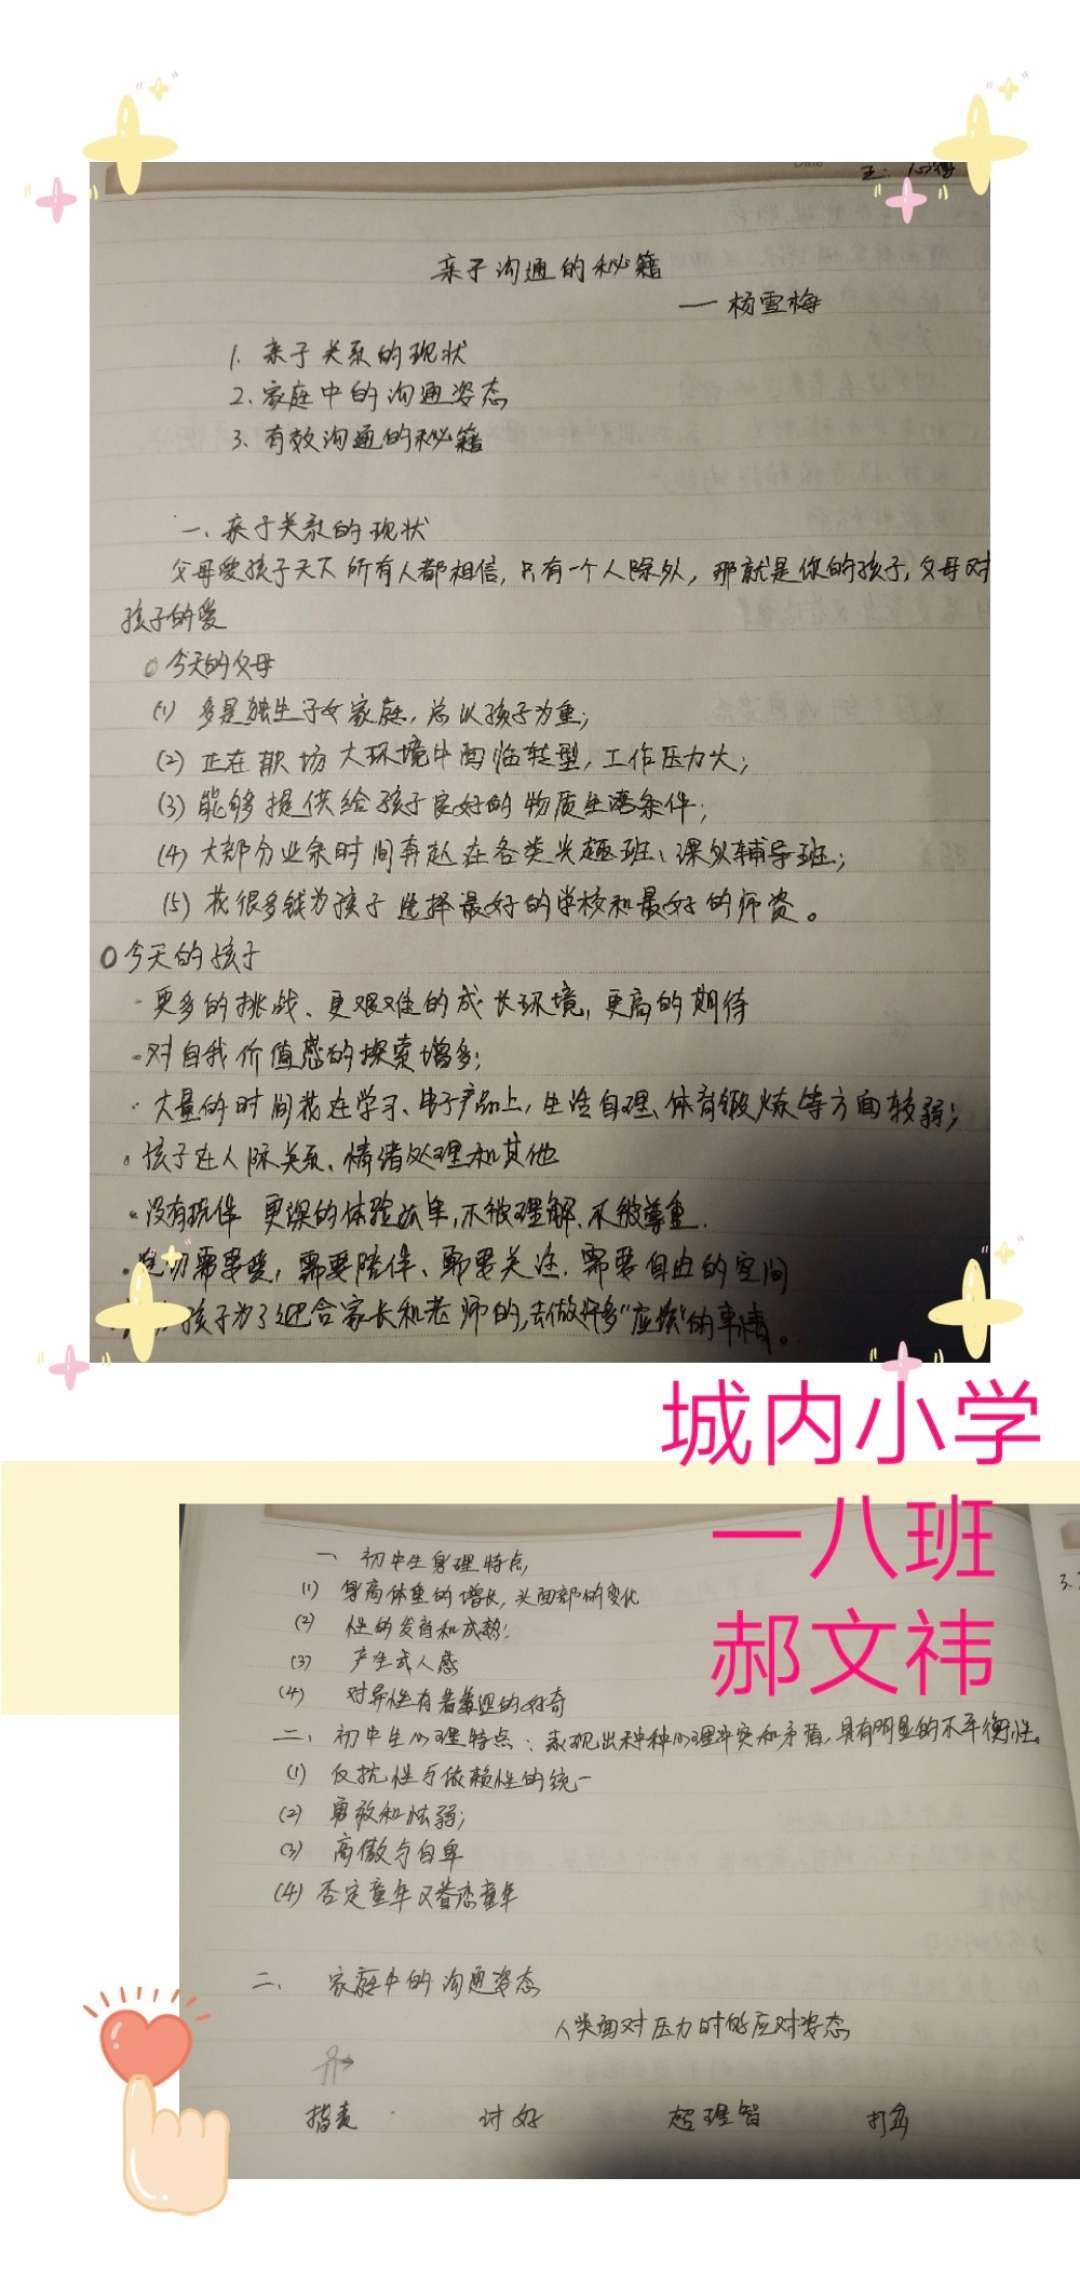 亲子沟通的秘籍
— 杨雪梅
1. 亲子关系的现状
2. 家庭中的沟通姿态
3. 有效沟通的秘籍
一、亲子关系的现状
父母爱孩子天下所有人都相信,只有一个人除外,那就是你的孩子,父母对
孩子的爱
○ 今天的父母
(1) 多是独生子女家庭,总以孩子为重;
(2) 正在职场大环境中面临转型,工作压力大;
(3) 能够提供给孩子良好的物质生活条件;
(4) 大部分业余时间奔赴在各类兴趣班、课外辅导班;
(5) 花很多钱为孩子选择最好的学校和最好的师资。
○ 今天的孩子
· 更多的挑战、更艰难的成长环境,更高的期待
· 对自我价值感的探索增多;
· 大量的时间花在学习、电子产品上,生活自理、体育锻炼等方面较弱;
· 孩子在人际关系、情绪处理和其他
· 没有玩伴 更深的体验孤单,不被理解、不被尊重.
· 迫切需要爱,需要陪伴、需要关注.需要自由的空间
孩子为了迎合家长和老师的,去做好多“应该”的事情。
城内小学
一八班
郝文祎
一 初中生身理特点
(1) 身高体重的增长,头面部的变化
(2) 性的发育和成熟;
(3) 产生成人感
(4) 对异性有着羞涩的好奇
二、初中生心理特点:表现出种种心理冲突和矛盾,具有明显的不平衡性。
(1) 反抗性与依赖性的统一
(2) 勇敢和怯弱;
(3) 高傲与自卑
(4) 否定童年又眷恋童年
二、 家庭中的沟通姿态
人类面对压力时的应对姿态
指责 讨好 超理智 打岔
3.